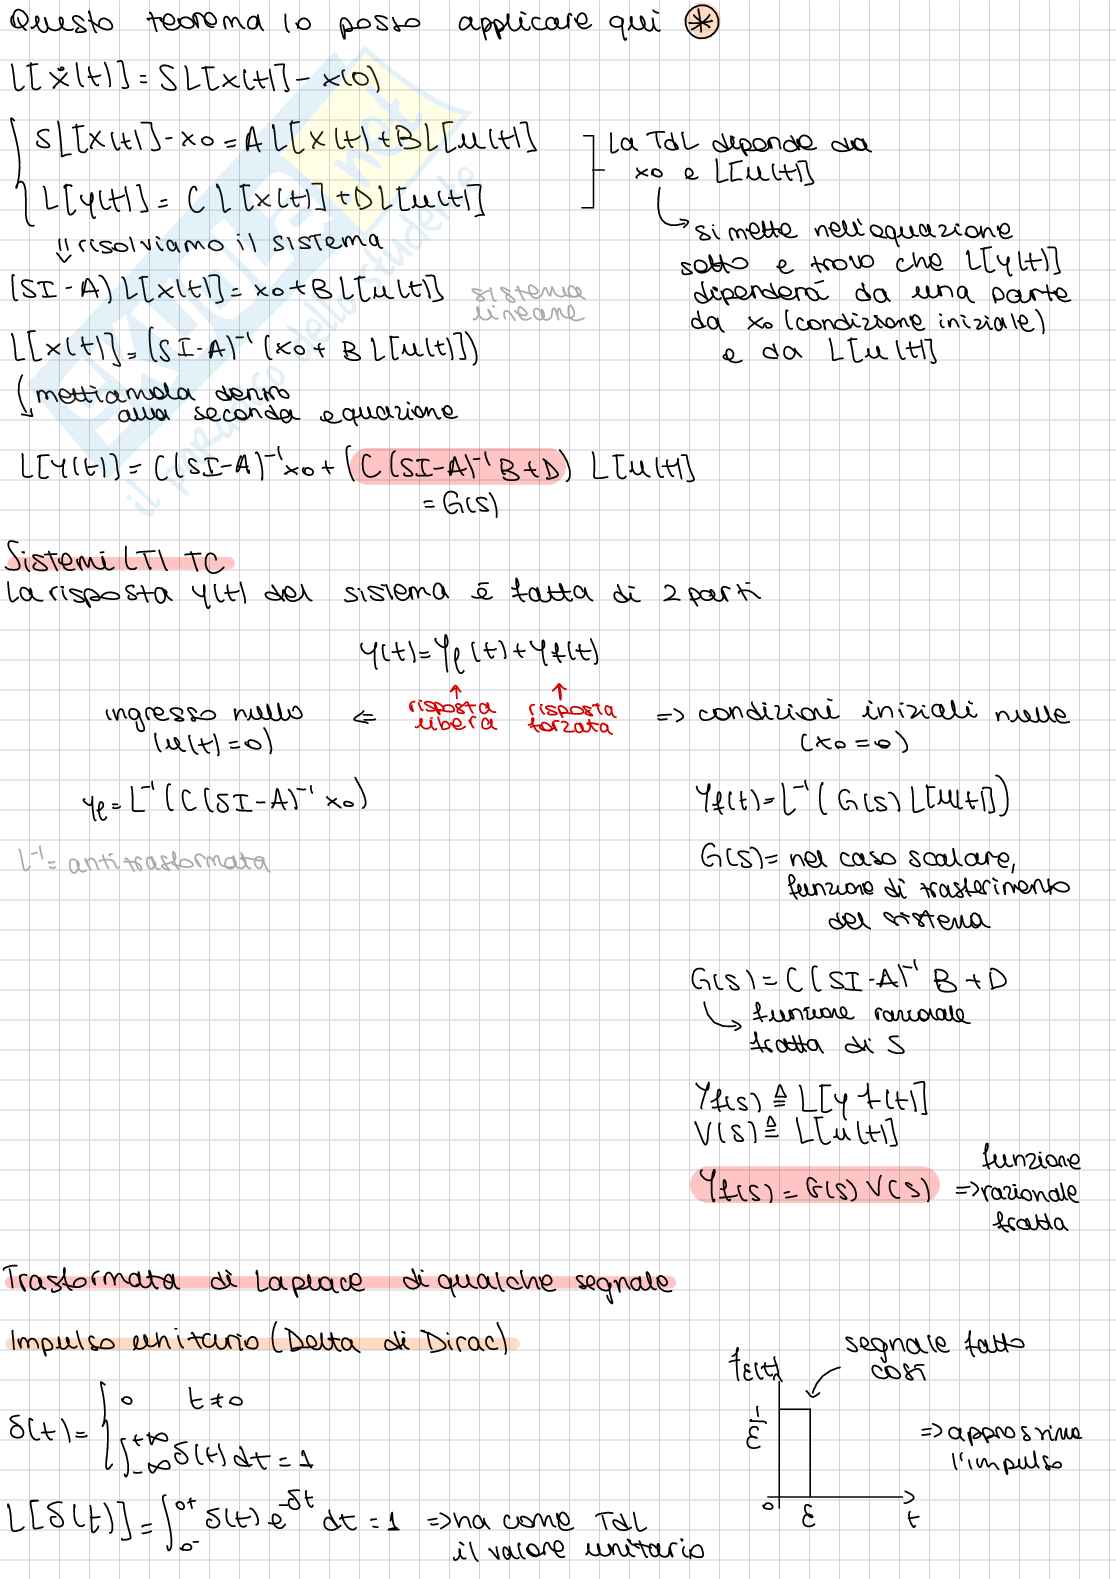 Questo teorema lo posso applicare qui ⊛
L[ẋ(t)] = S L[x(t)] - x(0)
S L[x(t)] - x0 = A L[x(t) + B L[u(t)]
L[y(t)] = C L[x(t)] + D L[u(t)]
La TdL dipende da
x0 e L[u(t)]
↳ si mette nell'equazione
sotto e trovo che L[y(t)]
dipenderà da una parte
da x0 (condizione iniziale)
e da L[u(t)]
⇓ risolviamo il sistema
(SI-A) L[x(t)] = x0 + B L[u(t)] sistema
lineare
L[x(t)] = (SI-A)⁻¹ (x0 + B L[u(t)])
↳ mettiamola dentro
alla seconda equazione
L[y(t)] = C(SI-A)⁻¹ x0 + (C(SI-A)⁻¹ B+D) L[u(t)]
= G(s)
Sistemi LTI TC
La risposta y(t) del sistema è fatta di 2 parti
y(t) = yℓ(t) + yf(t)
ingresso nullo ⇐ risposta libera
(u(t) = 0)
risposta forzata ⇒ condizioni iniziali nulle
(x0 = 0)
yℓ = L⁻¹ (C(SI-A)⁻¹ x0)
L⁻¹ = antitrasformata
yf(t) = L⁻¹ (G(s) L[u(t)])
G(s) = nel caso scalare,
funzione di trasferimento
del sistema
G(s) = C(SI-A)⁻¹ B + D
↳ funzione razionale
fratta di S
Yf(s) ≜ L[yf(t)]
V(s) ≜ L[u(t)]
Yf(s) = G(s) V(s) ⇒ funzione
razionale
fratta
Trasformata di Laplace di qualche segnale
Impulso unitario (Delta di Dirac)
δ(t) = { 0 t≠0
∫₋∞⁺∞ δ(t) dt = 1
L[δ(t)] = ∫₀₋⁰⁺ δ(t) e^-st dt = 1 ⇒ ha come TdL
il valore unitario
segnale fatto
così
fε(t)
1/ε
0
ε
t
⇒ approssima
l'impulso